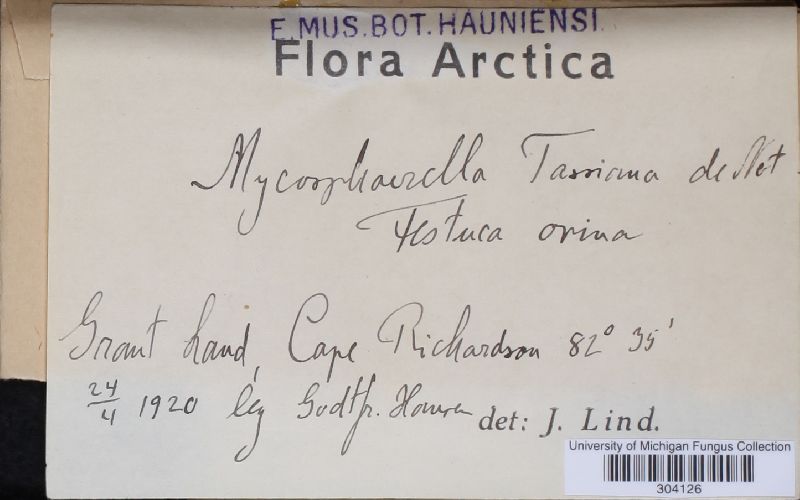 E.MUS.BOT.HAUNIENSI.
Flora Arctica
Mycosphaerella Tassiana de Not.
Festuca ovina
Grant Land, Cape Richardson 82° 35'
24/4 1920 leg Godtfr. Hansen det: J. Lind.
University of Michigan Fungus Collection
304126